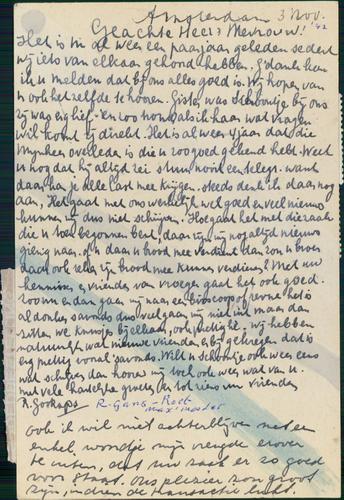 Amsterdam 3 Nov. '42
Geachte Heer & Mevrouw!
Het is nu al weer een paar jaar geleden sedert
wij iets van elkaar gehoord hebben. G'dank kan
ik u melden dat bij ons alles goed is. Wij hopen van
u ook hetzelfde te hooren. Gister was Schoontje bij ons
zij was erg lief en zoo nu en als ik haar wat vragen
wil komt zij direkt. Het is al weer 4 jaar dat die
Mijnheer overleden is die u zoo goed gekend hebt. Weet
u nog dat hij altijd zei stuur nooit een telegr. want
daar kan je alle last mee krijgen. Steeds denk ik daar nog
aan, Het gaat met ons werkelijk wel goed en veel nieuws
kunnen wij dus niet schrijven. Hoe gaat het met die zaak
die u toen begonnen bent, daar zijn wij nog altijd nieuws-
gierig naar, of u daar u brood mee verdient dan zou u broer
daar ook zijn brood mee kunnen verdienen? Met uw
kennissen & vrienden van vroeger gaat het ook goed.
zoo nu en dan gaan wij naar een bioscoop of revue het is
al donker savonds dus veel gaan wij niet uit maar dan
zitten we knusjes bij elkaar, ook prettig. Wij hebben
natuurlijk wat nieuwe vrienden er bij gekregen dat is
erg prettig vooral savonds. Wilt u Schoontje ook weer eens
wat schrijven dan hooren wij toch ook weer wat van u.
met vele hartelijke groeten en tot ziens uw vrienden
R. Gans-Root
ook ik wil niet achterblijven met een
enkel woordje mijn vreugde erover
te uiten, dat uw zaak er zo goed
voor staat. Ons plezier zou groot
zijn, indien de